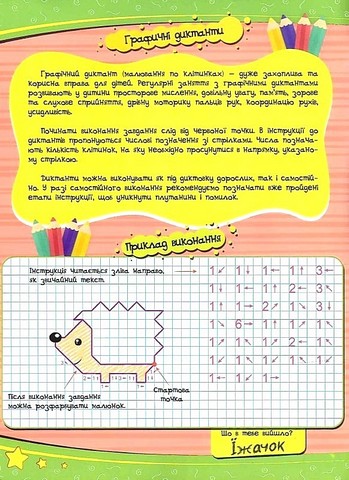 Графічні диктанти
Графічний диктант (малювання по клітинках) – дуже захоплива та
корисна вправа для дітей. Регулярні заняття з графічними диктантами
розвивають у дитини просторове мислення, довільну увагу, пам'ять, зорове
та слухове сприйняття, дрібну моторику пальців рук, координацію рухів,
усидливість.
Починати виконання завдання слід від червоної точки. В інструкції до
диктантів пропонуються числові позначення зі стрілками. Числа познача-
ють кількість клітинок, на яку необхідно просунутися в напрямку, указано-
му стрілкою.
Диктанти можна виконувати як під диктовку дорослих, так і самостій-
но. У разі самостійного виконання рекомендуємо позначати вже пройдені
етапи інструкції, щоб уникнути плутанини і помилок.
Приклад виконання
Інструкція читається зліва направо,
як звичайний текст.
1↙ 1↓ 1← 1↑ 3←
1↓ 1← 1↑ 2← 3↖
1↑ 1→ 2↖ 1↘ 3↓
1↘ 6→ 1↑ 1↗ 1↖
1↗ 1↖ 1↗ 2← 1↖
1↙ 1↖ 1↙ 1↖ 1↙
1← 1↙ 1→
Стартова
точка
Після виконання завдання
можна розфарбувати малюнок.
Що в тебе вийшло?
Їжачок